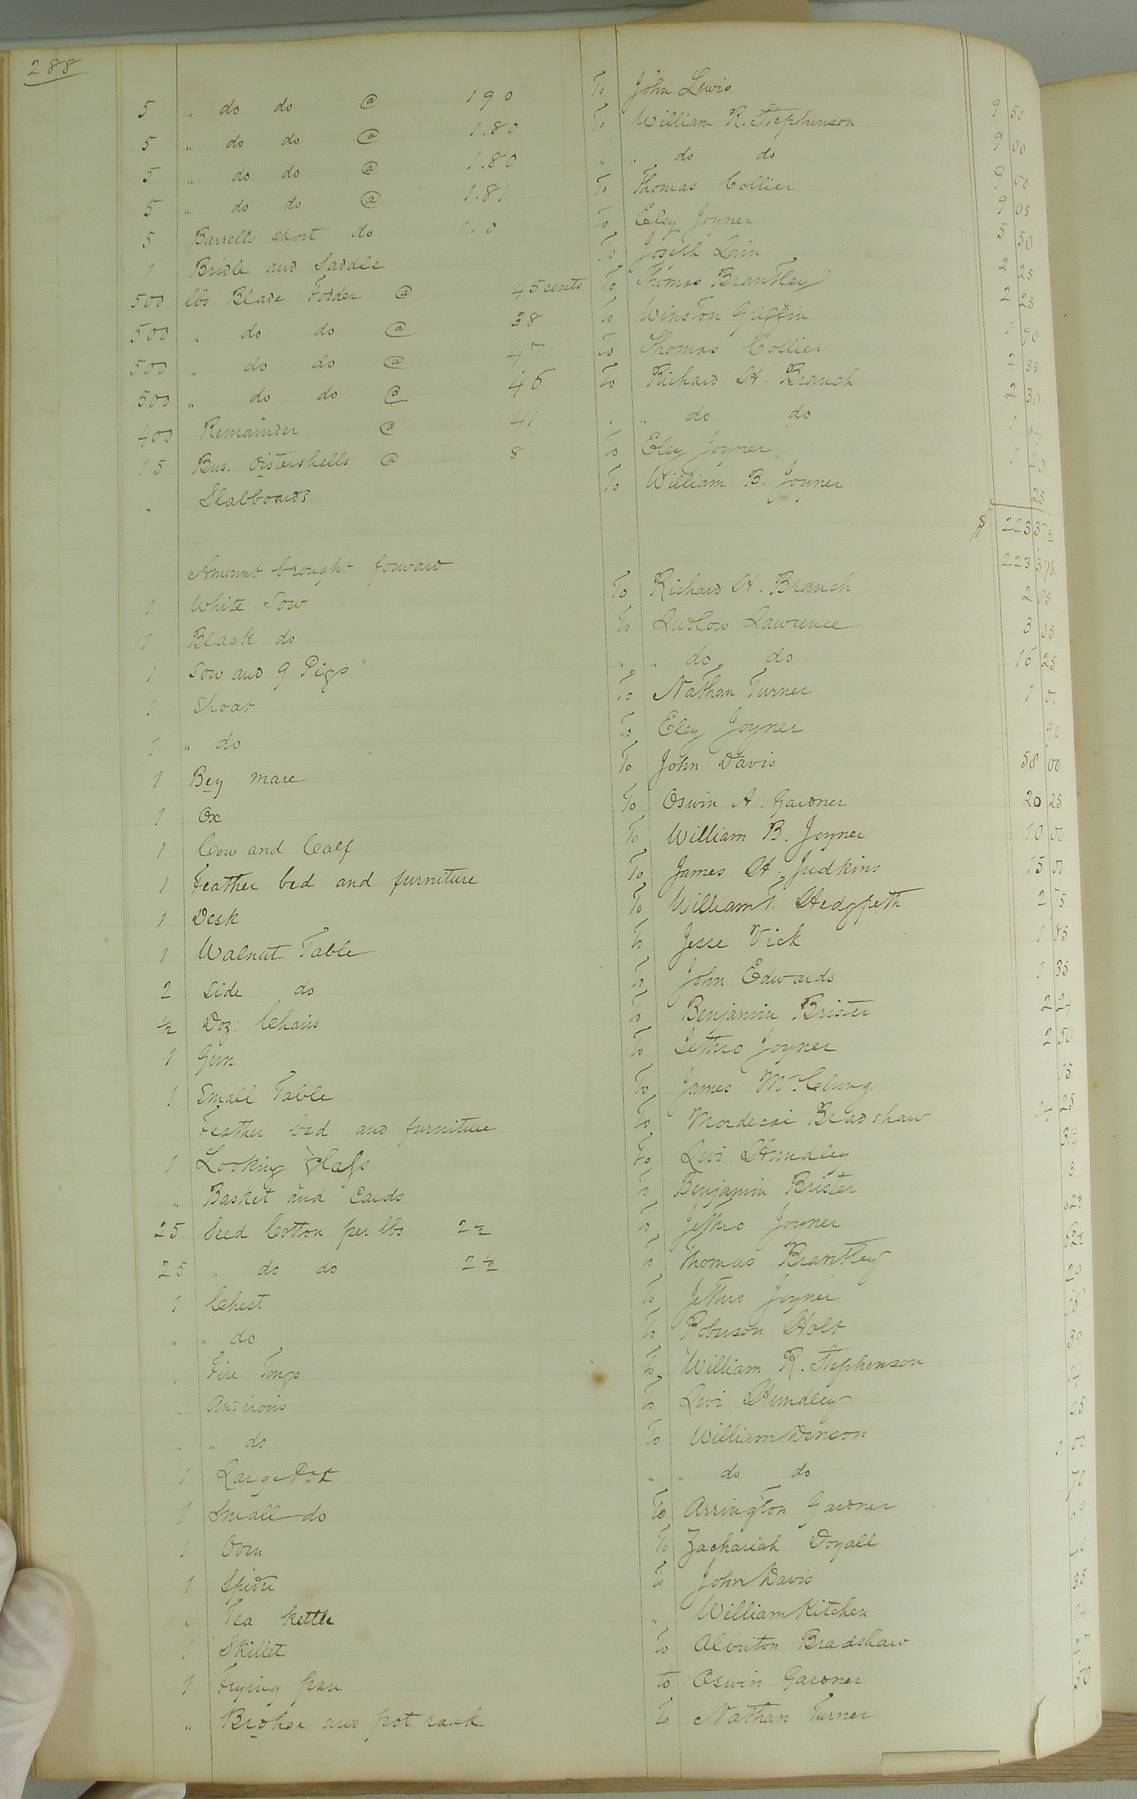 288
5 " do do @ 190 To John Lewis 9 50
5 " do do @ 1.80 To William R. Stephenson 9 00
5 " do do @ 1.80 " " do do 9 00
5 " do do @ 1.81 To Thomas Collier 9 05
5 Barrells short do To Eley Joyner 5 50
1 Bridle and Saddle To Joseph Lain 2 25
500 lbs Blade Fodder @ 45 cents To Thomas Brantley 2 25
500 " do do @ 38 To Winston Griffin 1 90
500 " do do @ To Thomas Collier 2 35
500 " do do @ 46 To Richard H. Branch 2 30
400 Remainder @ 41 " " do do 1 64
15 Bus. Oistershells @ 8 To Eley Joyner 1 20
" Slabboards To William B. Joyner 25
$ 223
Amount brought forward 223
1 White Sow To Richard H. Branch 2
1 Black do To Ludlow Lawrence 3
1 Sow and 9 Pigs " " do do 16 25
1 Shoat To Nathan Turner 1
1 " do To Eley Joyner 90
1 Bey mare To John Davis 58 00
1 Ox To Oswin A. Gardner 20 25
1 Cow and Calf To William B. Joyner 10 00
1 Feather bed and furniture To James H. Judkins 15 00
1 Desk To William T. Hedgpeth 2 75
1 Walnut Table To Jesse Vick 1 85
2 Side do To John Edwards 1 35
½ Doz: Chairs To Benjamin Brister 2 24
1 Gun To Jethro Joyner 2 50
1 Small Table To James McClung
Feather bed and furniture To Mordecai Bradshaw 25
1 Looking Glass To Levi Hundley
" Basket and Cards To Benjamin Brister
25 Seed Cotton per lbs 2½ To Jethro Joyner 62½
25 " do do 2½ To Thomas Brantley 62½
1 Chest To Jethro Joyner 20
" " do To Robinson Holt
Fire Tongs To William R. Stephenson 30
Andirons To Levi Hundley
" " do To William Denson
1 Large Pot " " do do
1 Small do To Arrington Gardner
1 Oven To Zachariah Doyall
1 Spider To John Davis
" Tea kettle " William Kitchen 35
1 Skillet To Albriton Bradshaw
1 Frying pan to Oswin Gardner
" Broken and pot rack To Nathan Turner 50